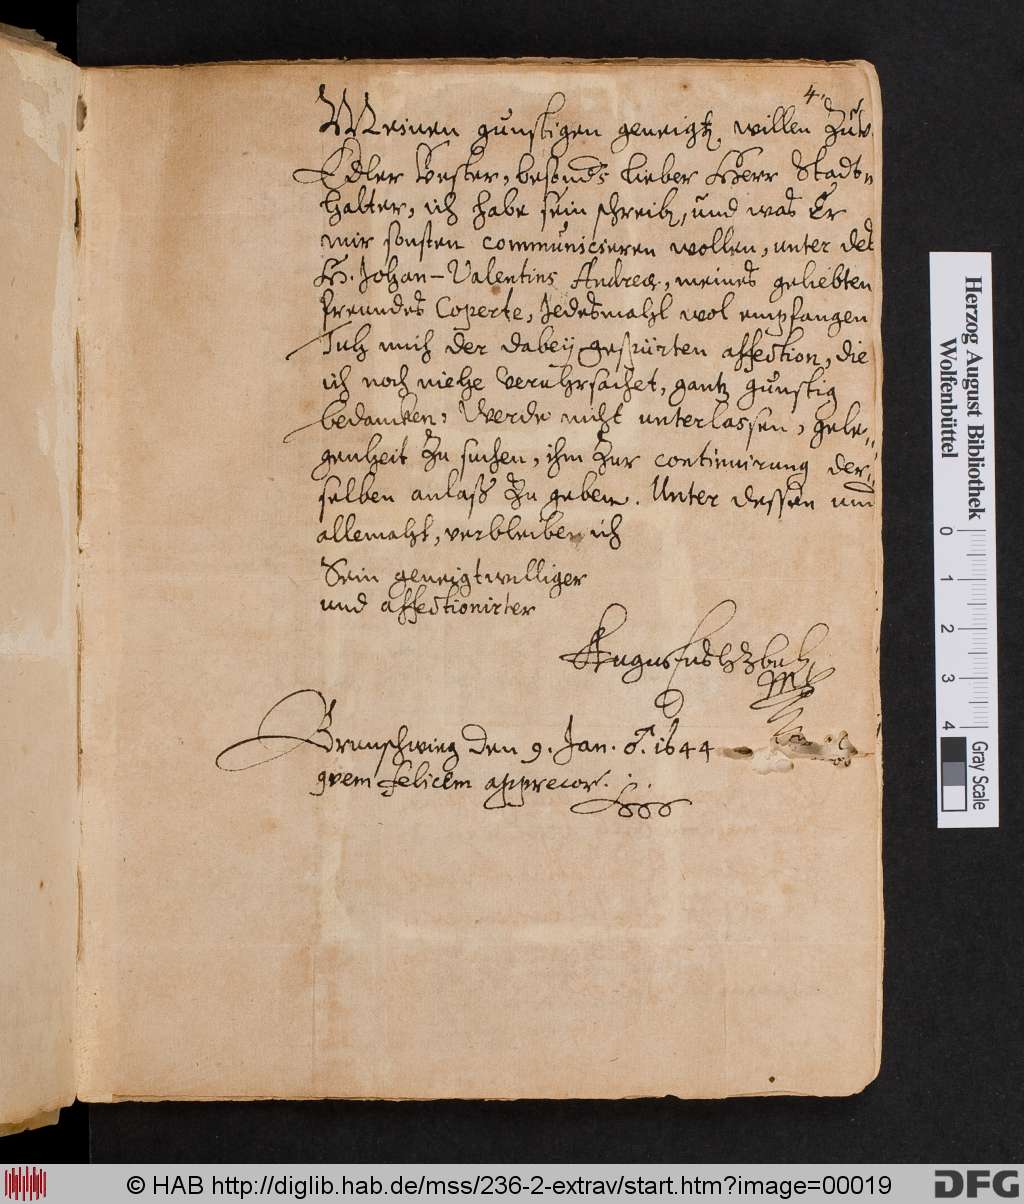 4.
Meinen gunstigen geneigt. willen zuv
Edler Vester, besonds lieber Herr Stadt-
halter, ich habe sein schreib., und was Er
mir sonsten communicieren wollen, unter des
H. Johan-Valentins Andreæ, meines geliebten
freundes Coperte, Jedesmahl wol empfangen
Thu mich der dabeÿ gespürten affection, die
ich noch nicht veruhrsachet, gantz günstig
bedancken, Werde nicht unterlassen, gele-
genheit zu suchen, ihm zur continuirung der-
selben anlaß zu geben. Unter dessen und
allemahl, verbleiben ich
Sein geneigtwilliger
und affectionirter
Augustus HzBuL
Brunschwieg den 9. Jan. 1644
quem felicem apprecor.
Herzog August Bibliothek
Wolfenbüttel
0 1 2 3 4
Gray Scale
© HAB http://diglib.hab.de/mss/236-2-extrav/start.htm?image=00019
DFG